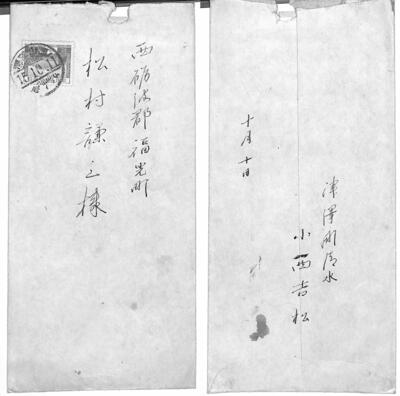 西砺波郡福光町
松村謙三様
15.10.11
津澤町清水
小西吉松
十月十日